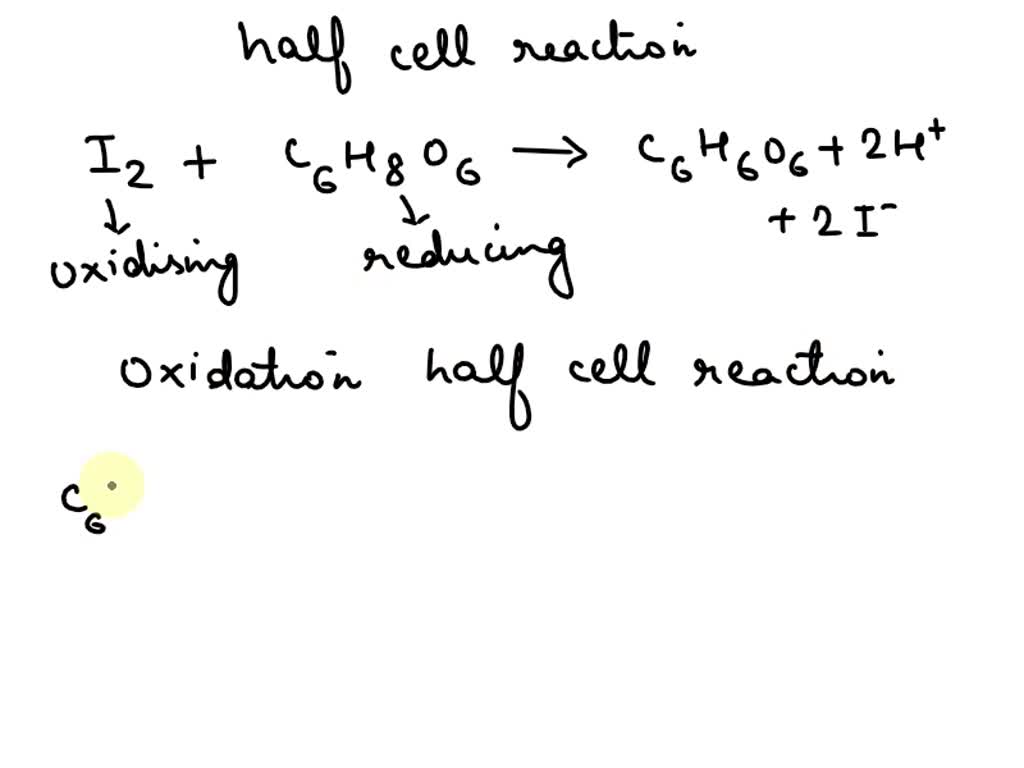 half cell reaction
I₂ + C₆H₈O₆ → C₆H₆O₆ + 2H⁺
+ 2I⁻
↓ ↓
oxidising reducing
oxidation half cell reaction
C₆